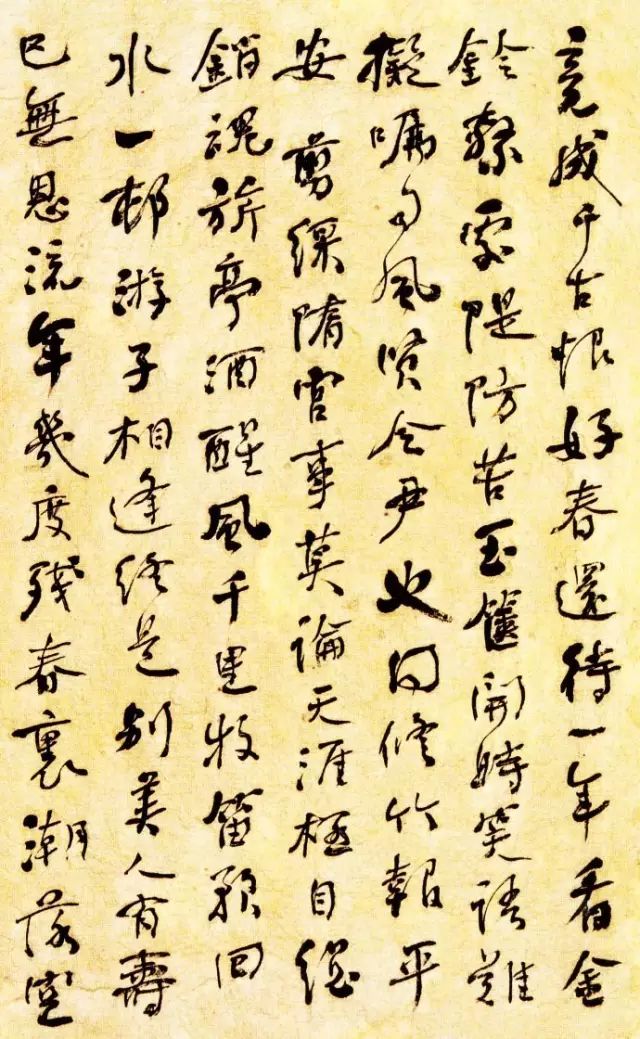 竟成千古恨好春還待一年看金
鈴繫處隄防苦玉開時笑語難
擬囑司風賢令尹也同修竹報平
安 剪綵隋宮事莫論天涯極目總
銷魂旂亭酒醒風千里牧笛歌回
水一邨游子相逢終是別美人有壽
已無恩流年幾度殘春裏潮落空